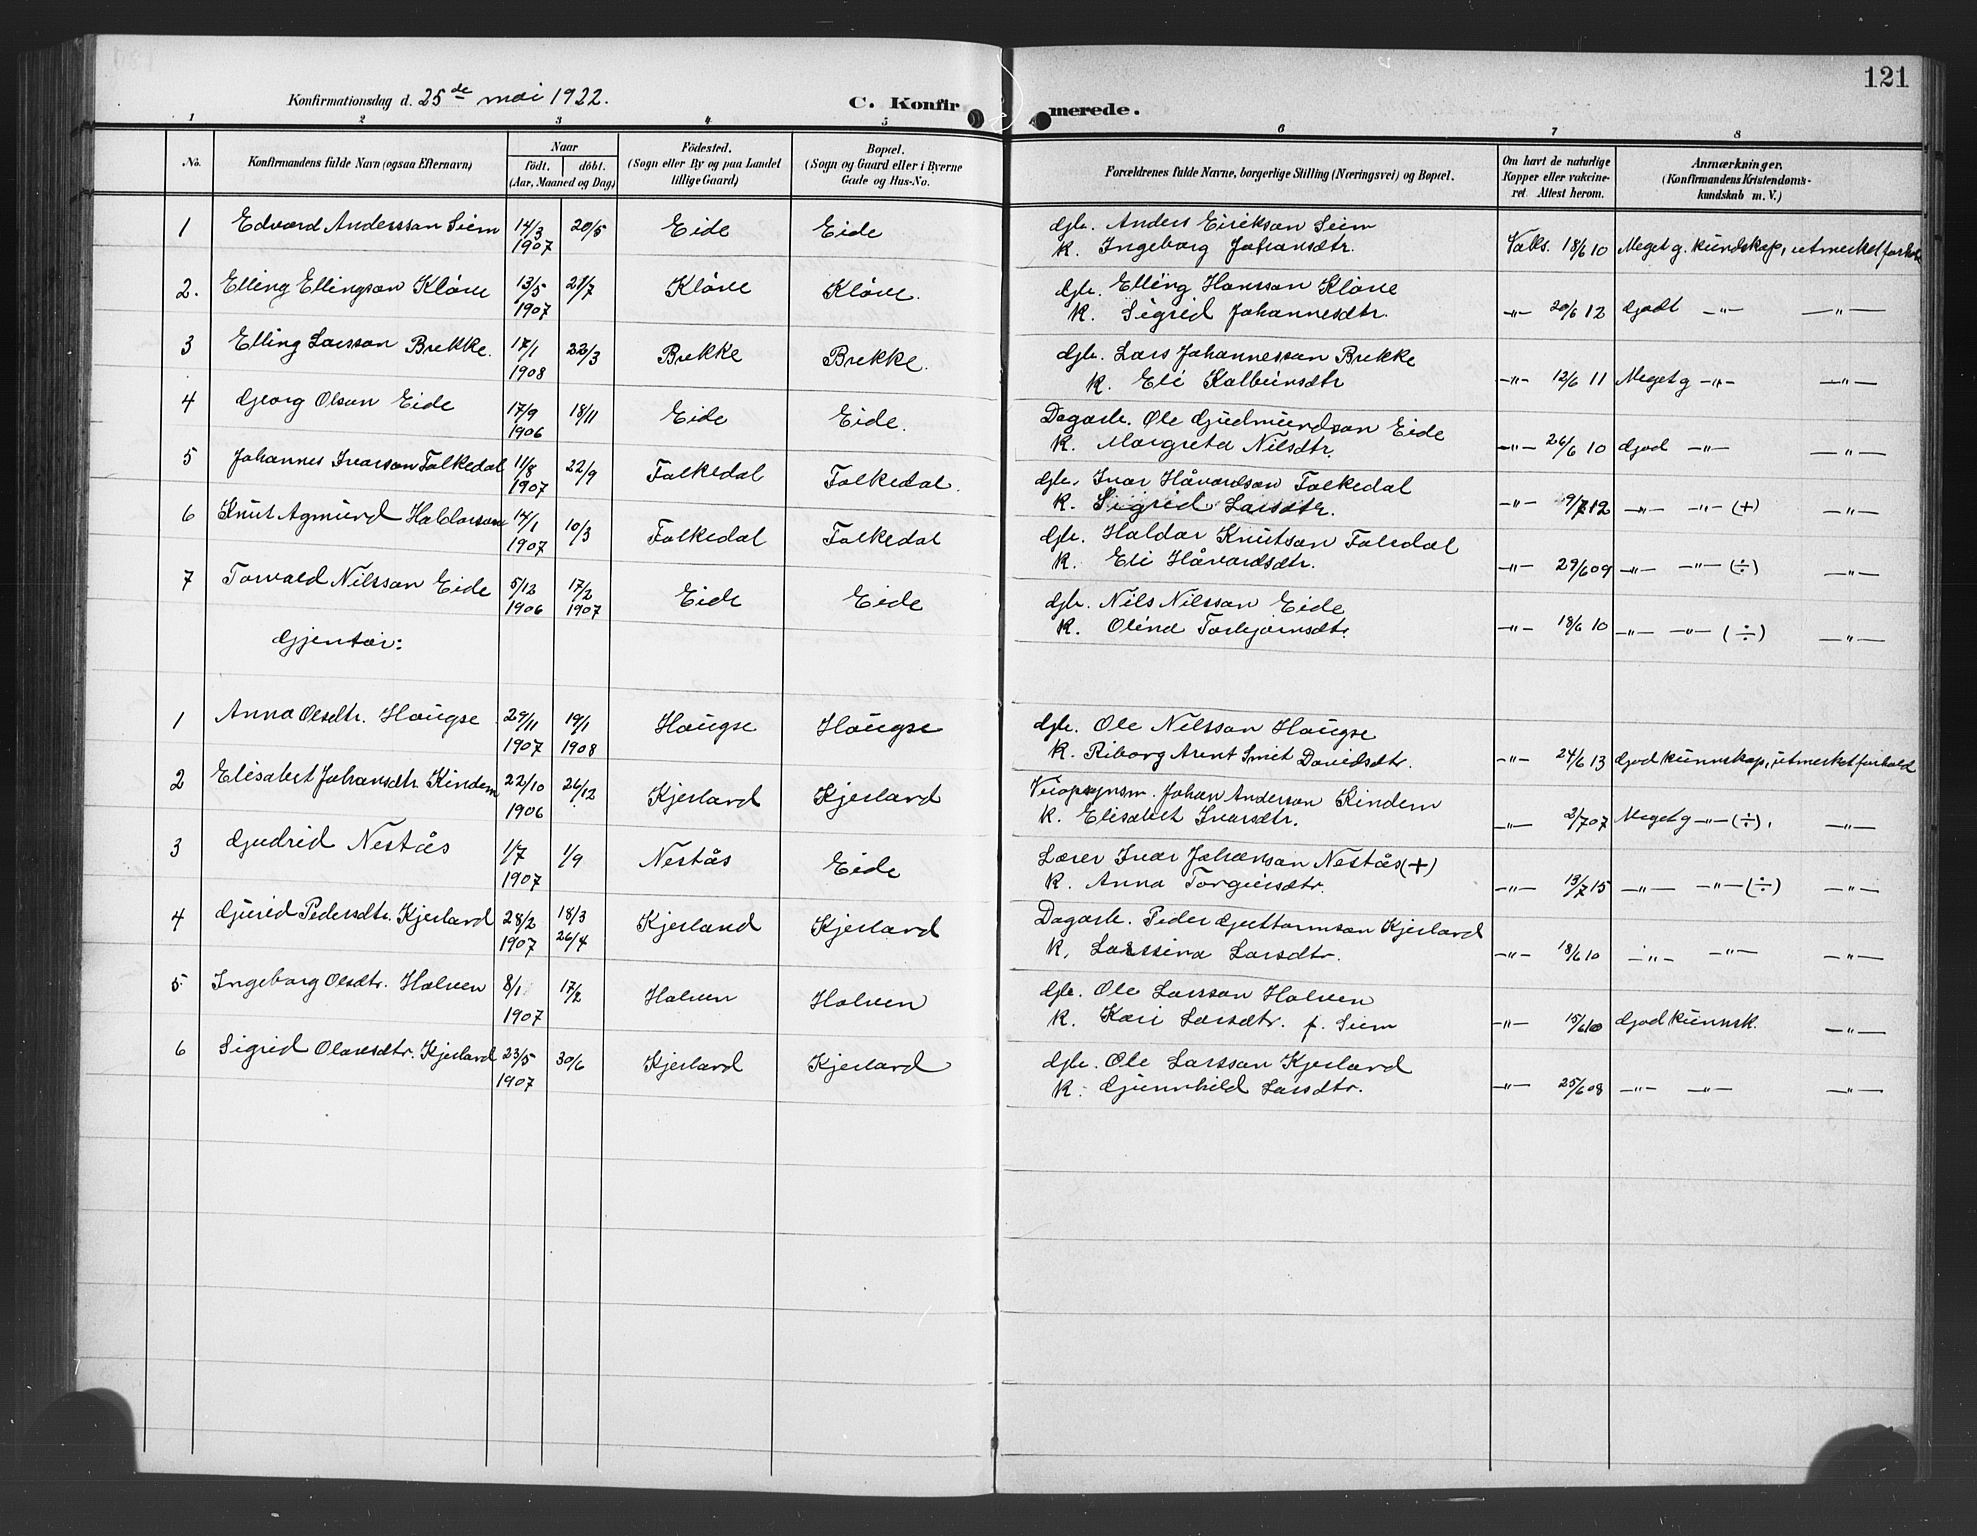 121
Konfirmationsdag d. 25de mai 1922. C. Konfirmerede.
1 2 3 4 5 6 7 8
No. Konfirmandens fulde Navn (ogsaa Efternavn) Naar født. døbt. (Aar, Maaned og Dag) Fødested. (Sogn eller By og paa Landet tillige Gaard) Bopæl. (Sogn og Gaard eller i Byerne Gade og Hus-No. Forældrenes fulde Navne, borgerlige Stilling (Næringsvei) og Bopæl. Om havt de naturlige Kopper eller vakcineret. Attest herom. Anmærkninger. (Konfirmandens Kristendomskundskab m. V.)
1 Edvard Andersson Seim 14/3 1907 20/5 Eide Eide gbr. Anders Eirikson Seim
K. Ingeborg Johansdtr. Vaks. 18/6 10 Meget g. kundskap, utmerket forhold
2. Elling Ellingson Kløve 13/5 1907 21/7 Kløve Kløve. gbr. Elling Hansson Kløve
K. Sigrid Johannesdtr. -"- 20/6 12 Godt -"- -"-
3 Elling Larsson Brekke. 17/1 1908 22/3 Brekke Brekke. gbr. Lars Johannesson Brekke
K. Eli Kolbeinsdtr -"- 12/6 11 Meget g -"- -"-
4 Georg Olson Eide 17/9 1906 18/11 Eide Eide. Dagarb. Ole Gudmundson Eide
K. Margreta Nilsdtr. -"- 26/6 10 God -"- -"-
5 Johannes Ivarson Folkedal 11/8 1907 22/9 Folkedal Folkedal. gbr. Ivar Håvardson Folkedal
K. Sigrid Larsdtr. -"- 9/7 12 -"- -"- (+) -"-
6 Knut Agmund Haldorson 14/1 1907 10/3 Folkedal Folkedal gbr. Haldor Knutson Foledal
K. Eli Håvardsdtr. -"- 29/6 09 -"- -"- (÷) -"-
7 Torvald Nilsson Eide 5/12 1906 17/2 1907 Eide Eide gbr. Nils Nilsson Eide
K. Olina Torbjørnsdtr. -"- 18/6 10 -"- -"- (÷) -"-
Gjentor:
1 Anna Olsdtr. Haugse 29/11 1907 19/1 1908 Haugse Haugse gbr. Ole Nilsson Haugse
K. Riborg Arent Smit Davidsdtr. -"- 24/6 13 God kunnskap, utmerket forhold
2 Elisabet Johansdtr. Kindem 22/10 1906 26/12 Kjerland Kjerland Veiopsynsm. Johan Anderson Kindem
K. Elisabet Ivarsdtr. -"- 2/7 07 Meget g -"- (÷). -"-
3 Gudrid Nestås 1/7 1907 1/9 Nestås Eide Lærer Ivar Johanson Nestås (+)
K. Anna Torgeirsdtr. -"- 13/7 15 -"- -"- (÷) -"-
4 Gurid Pedersdtr. Kjerland 28/2 1907 18/3 26/4 Kjerland Kjerland Dagarb. Peder Guttormson Kjerland
K. Larssina Larsdtr. -"- 18/6 10 -"- -"- -"-
5 Ingeborg Olsdtr. Halven 8/1 1907 17/2 Halven Halven gbr. Ole Larsson Halven
K. Kari Larsdtr. f. Seim -"- 15/6 God kunnsk. -"-
6 Sigrid Olavsdtr. Kjerland 23/5 1907 30/6 Kjerland Kjerland gbr. Ole Larsson Kjerland
K. Gunnhild Larsdtr. -"- 25/6 08 -"- -"- -"-